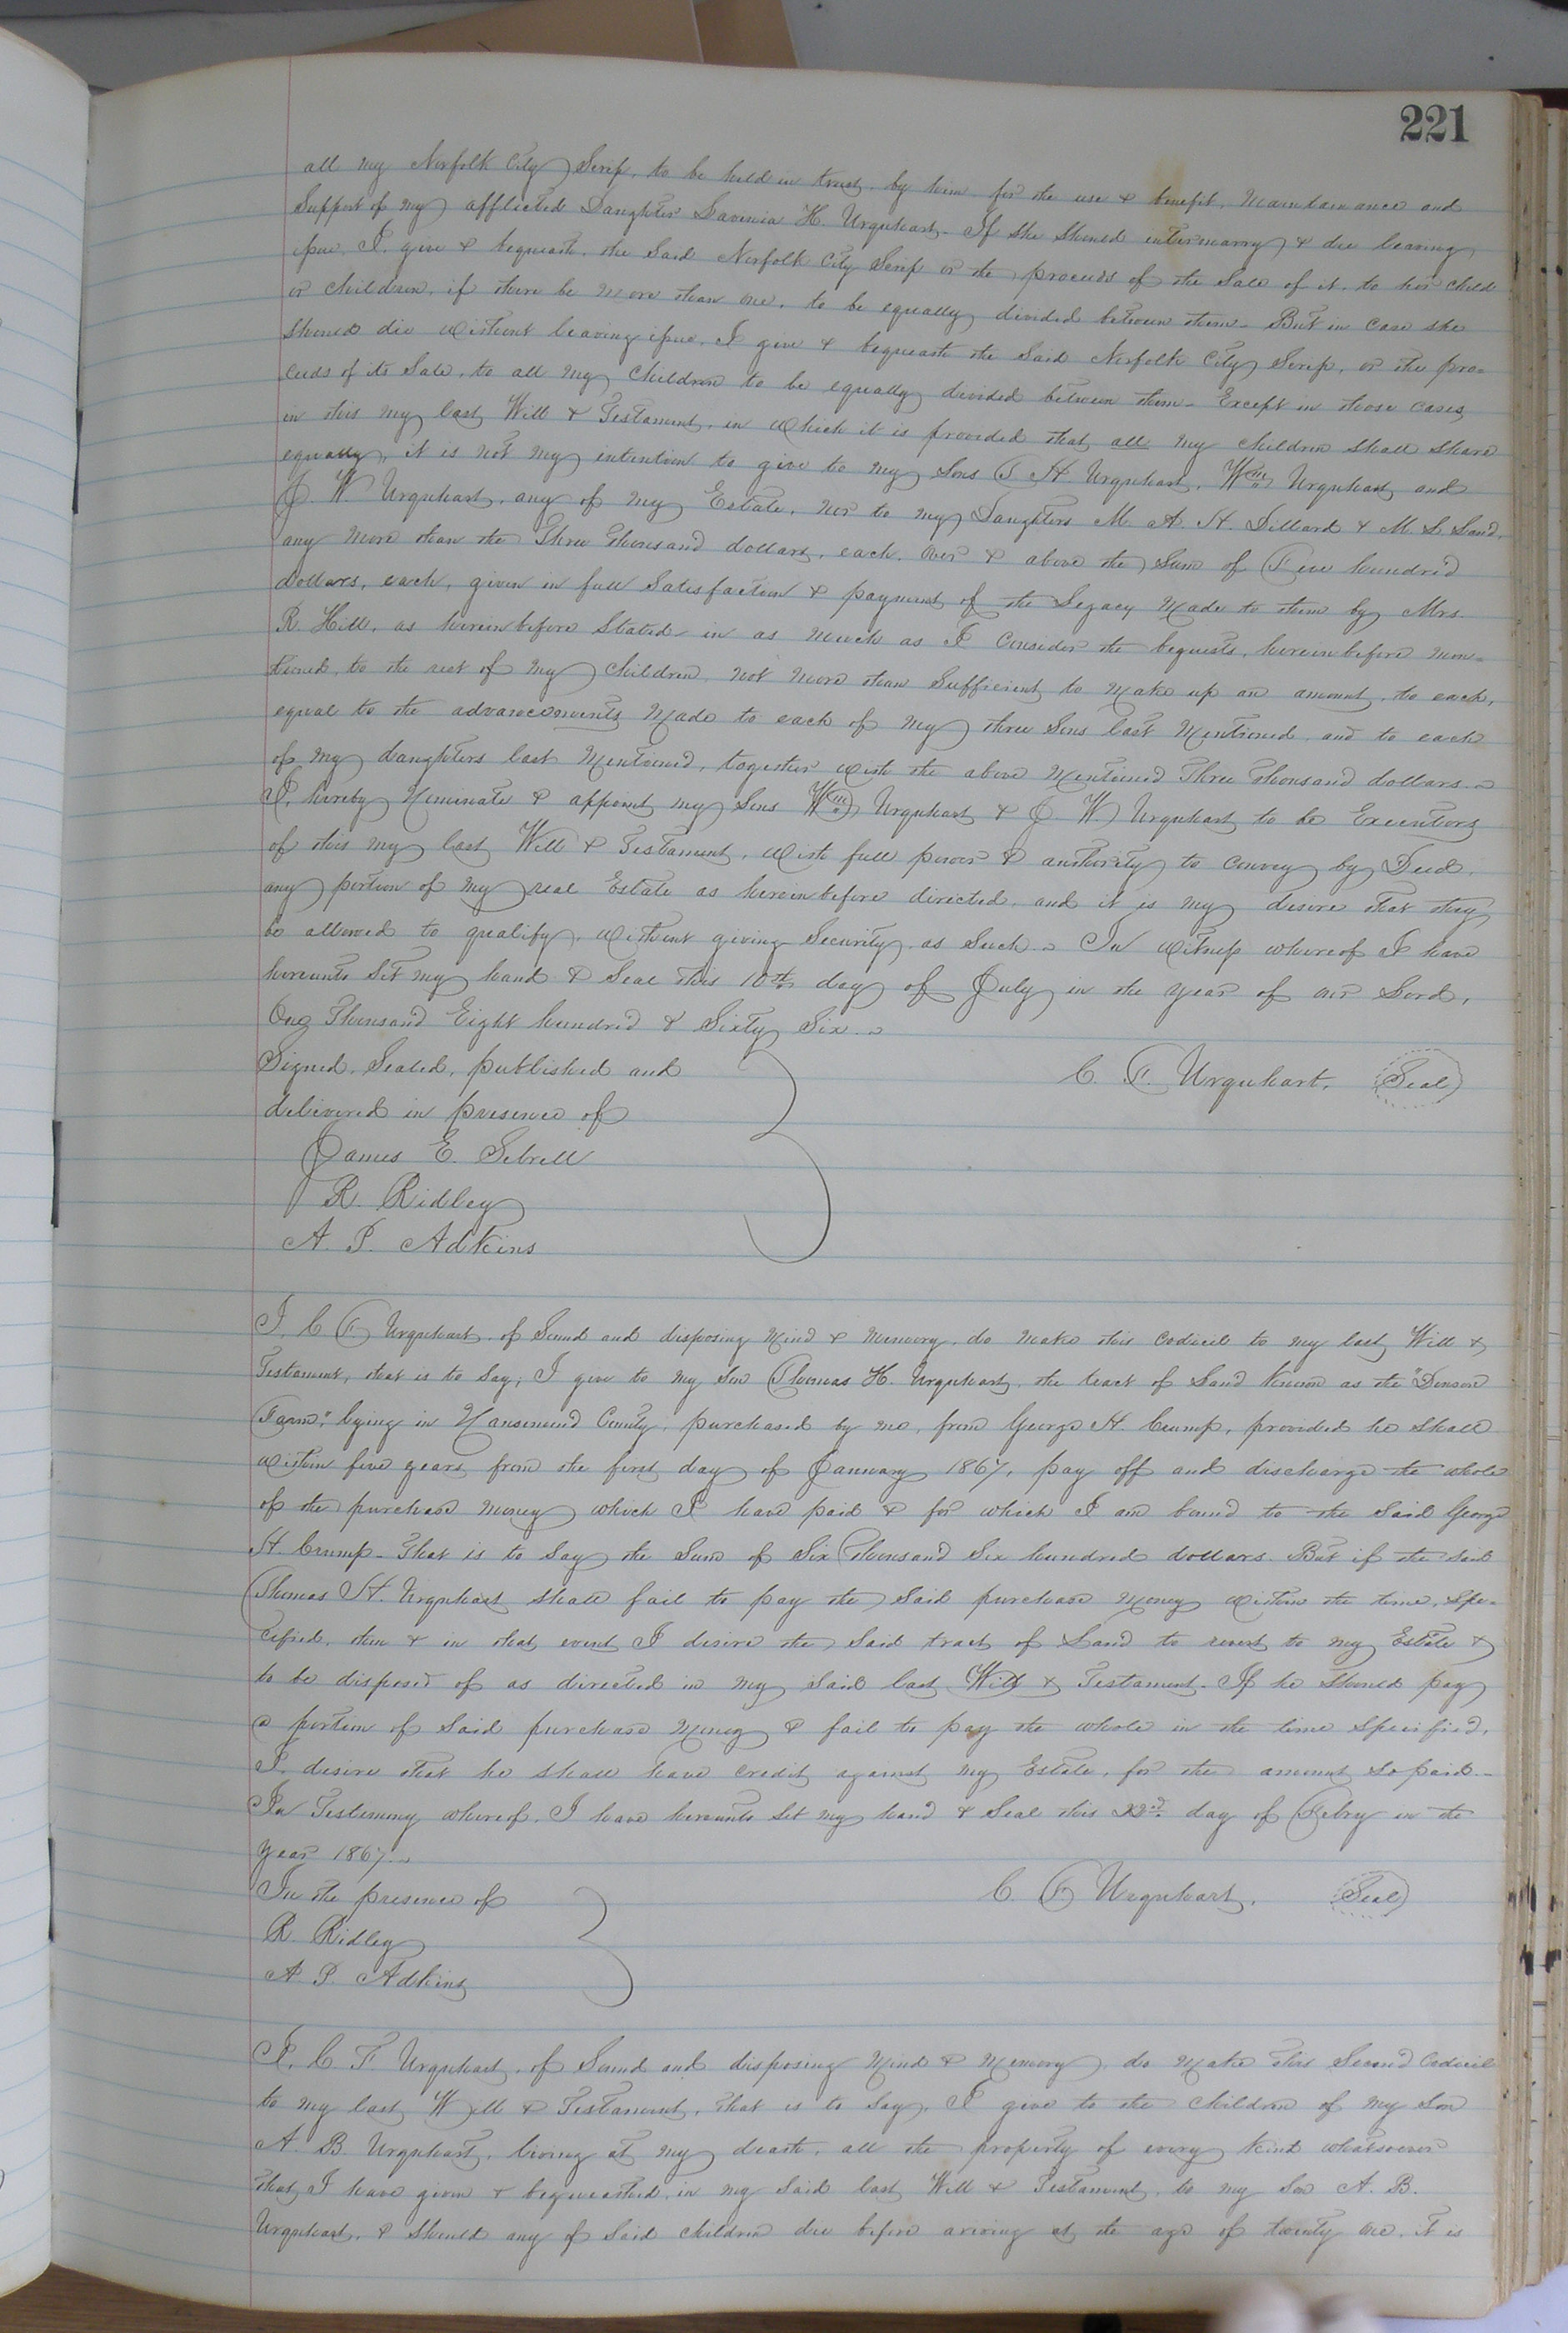 221
all my Norfolk City Scrip, to be held in trust, by him for the use & benefit, Maintainance and
Support of my afflicted Daughter Lavinia H. Urquhart. If she should intermarry & die leaving
issue, I give & bequeath, the Said Norfolk City Scrip or the proceeds of the Sale of it, to her child
or children, if there be more than one, to be equally divided between them. But in case she
should die without leaving issue, I give & bequeath the Said Norfolk City Scrip, or the pro=
ceeds of its Sale, to all my Children to be equally divided between them. Except in those cases,
in this my last Will & Testament, in which it is provided that all my children shall share
equally, it is not my intention to give to my Sons T H. Urquhart, Wm Urquhart and
J. W Urquhart, any of my Estate, nor to my Daughters M. A. H. Dillard & M. L. Land,
any more than the Three thousand dollars, each, over & above the Sum of Five hundred
dollars, each, given in full Satisfaction & payment of the Legacy Made to them by Mrs.
R. Hill, as hereinbefore Stated in as much as I consider the bequests, hereinbefore men=
tioned, to the rest of my Children, not more than Sufficient to make up an amount, to each,
equal to the advancements Made to each of my three Sons last Mentioned, and to each
of my daughters last Mentioned, together with the above Mentioned Three thousand dollars.
I, hereby Nominate & appoint my Sons Wm Urquhart & J W. Urquhart to be Executors
of this my last Will & Testament, with full power & authority to convey by Deed,
any portion of my real Estate as hereinbefore directed, and it is my desire that they
be allowed to qualify, without giving Security, as Such. In witness whereof I have
hereunto Set my hand & Seal this 10th day of July in the year of our Lord,
One Thousand Eight hundred & Sixty Six.
Signed, Sealed, published and
C. F. Urquhart, Seal
delivered in presence of
James E. Sebrell
R. Ridley
A. P. Adkins
I, C F Urquhart, of Sound and disposing Mind & Memory, do make this codicil to my last Will &
Testament, that is to Say; I give to my Son Thomas H. Urquhart, the tract of Land known as the "Denson
Farm," lying in Nansemond County, purchased by me, from George H. Crump, provided he shall
within five years from the first day of January 1867, pay off and discharge the whole
of the purchase money which I have paid & for which I am bound to the Said George
H. Crump. That is to Say the Sum of Six Thousand Six hundred dollars. But if the said
Thomas H. Urquhart shall fail to pay the Said purchase money within the time, Spe=
cified, then & in that event I desire the Said tract of Land to revert to my Estate &
to be disposed of as directed in my said last Will & Testament. If he Should pay
a portion of Said purchase Money & fail to pay the whole in the time Specified,
I, desire that he shall have credit against my Estate, for the amount So paid.
In Testimony whereof, I have hereunto Set my hand & Seal this 22nd day of Febry in the
year 1867.
In the presence of
C. F Urquhart, Seal
R. Ridley
A. P. Adkins
I, C F Urquhart, of Sound and disposing Mind & Memory, do Make this Second Codicil
to my last Will & Testament, that is to Say, I give to the Children of my Son
A. B. Urquhart, living at my death, all the property of every kind whatsoever
that I have given & bequeathed, in my Said last Will & Testament, to my Son A. B.
Urquhart, & Should any of Said children die before ariving at the age of twenty one, it is